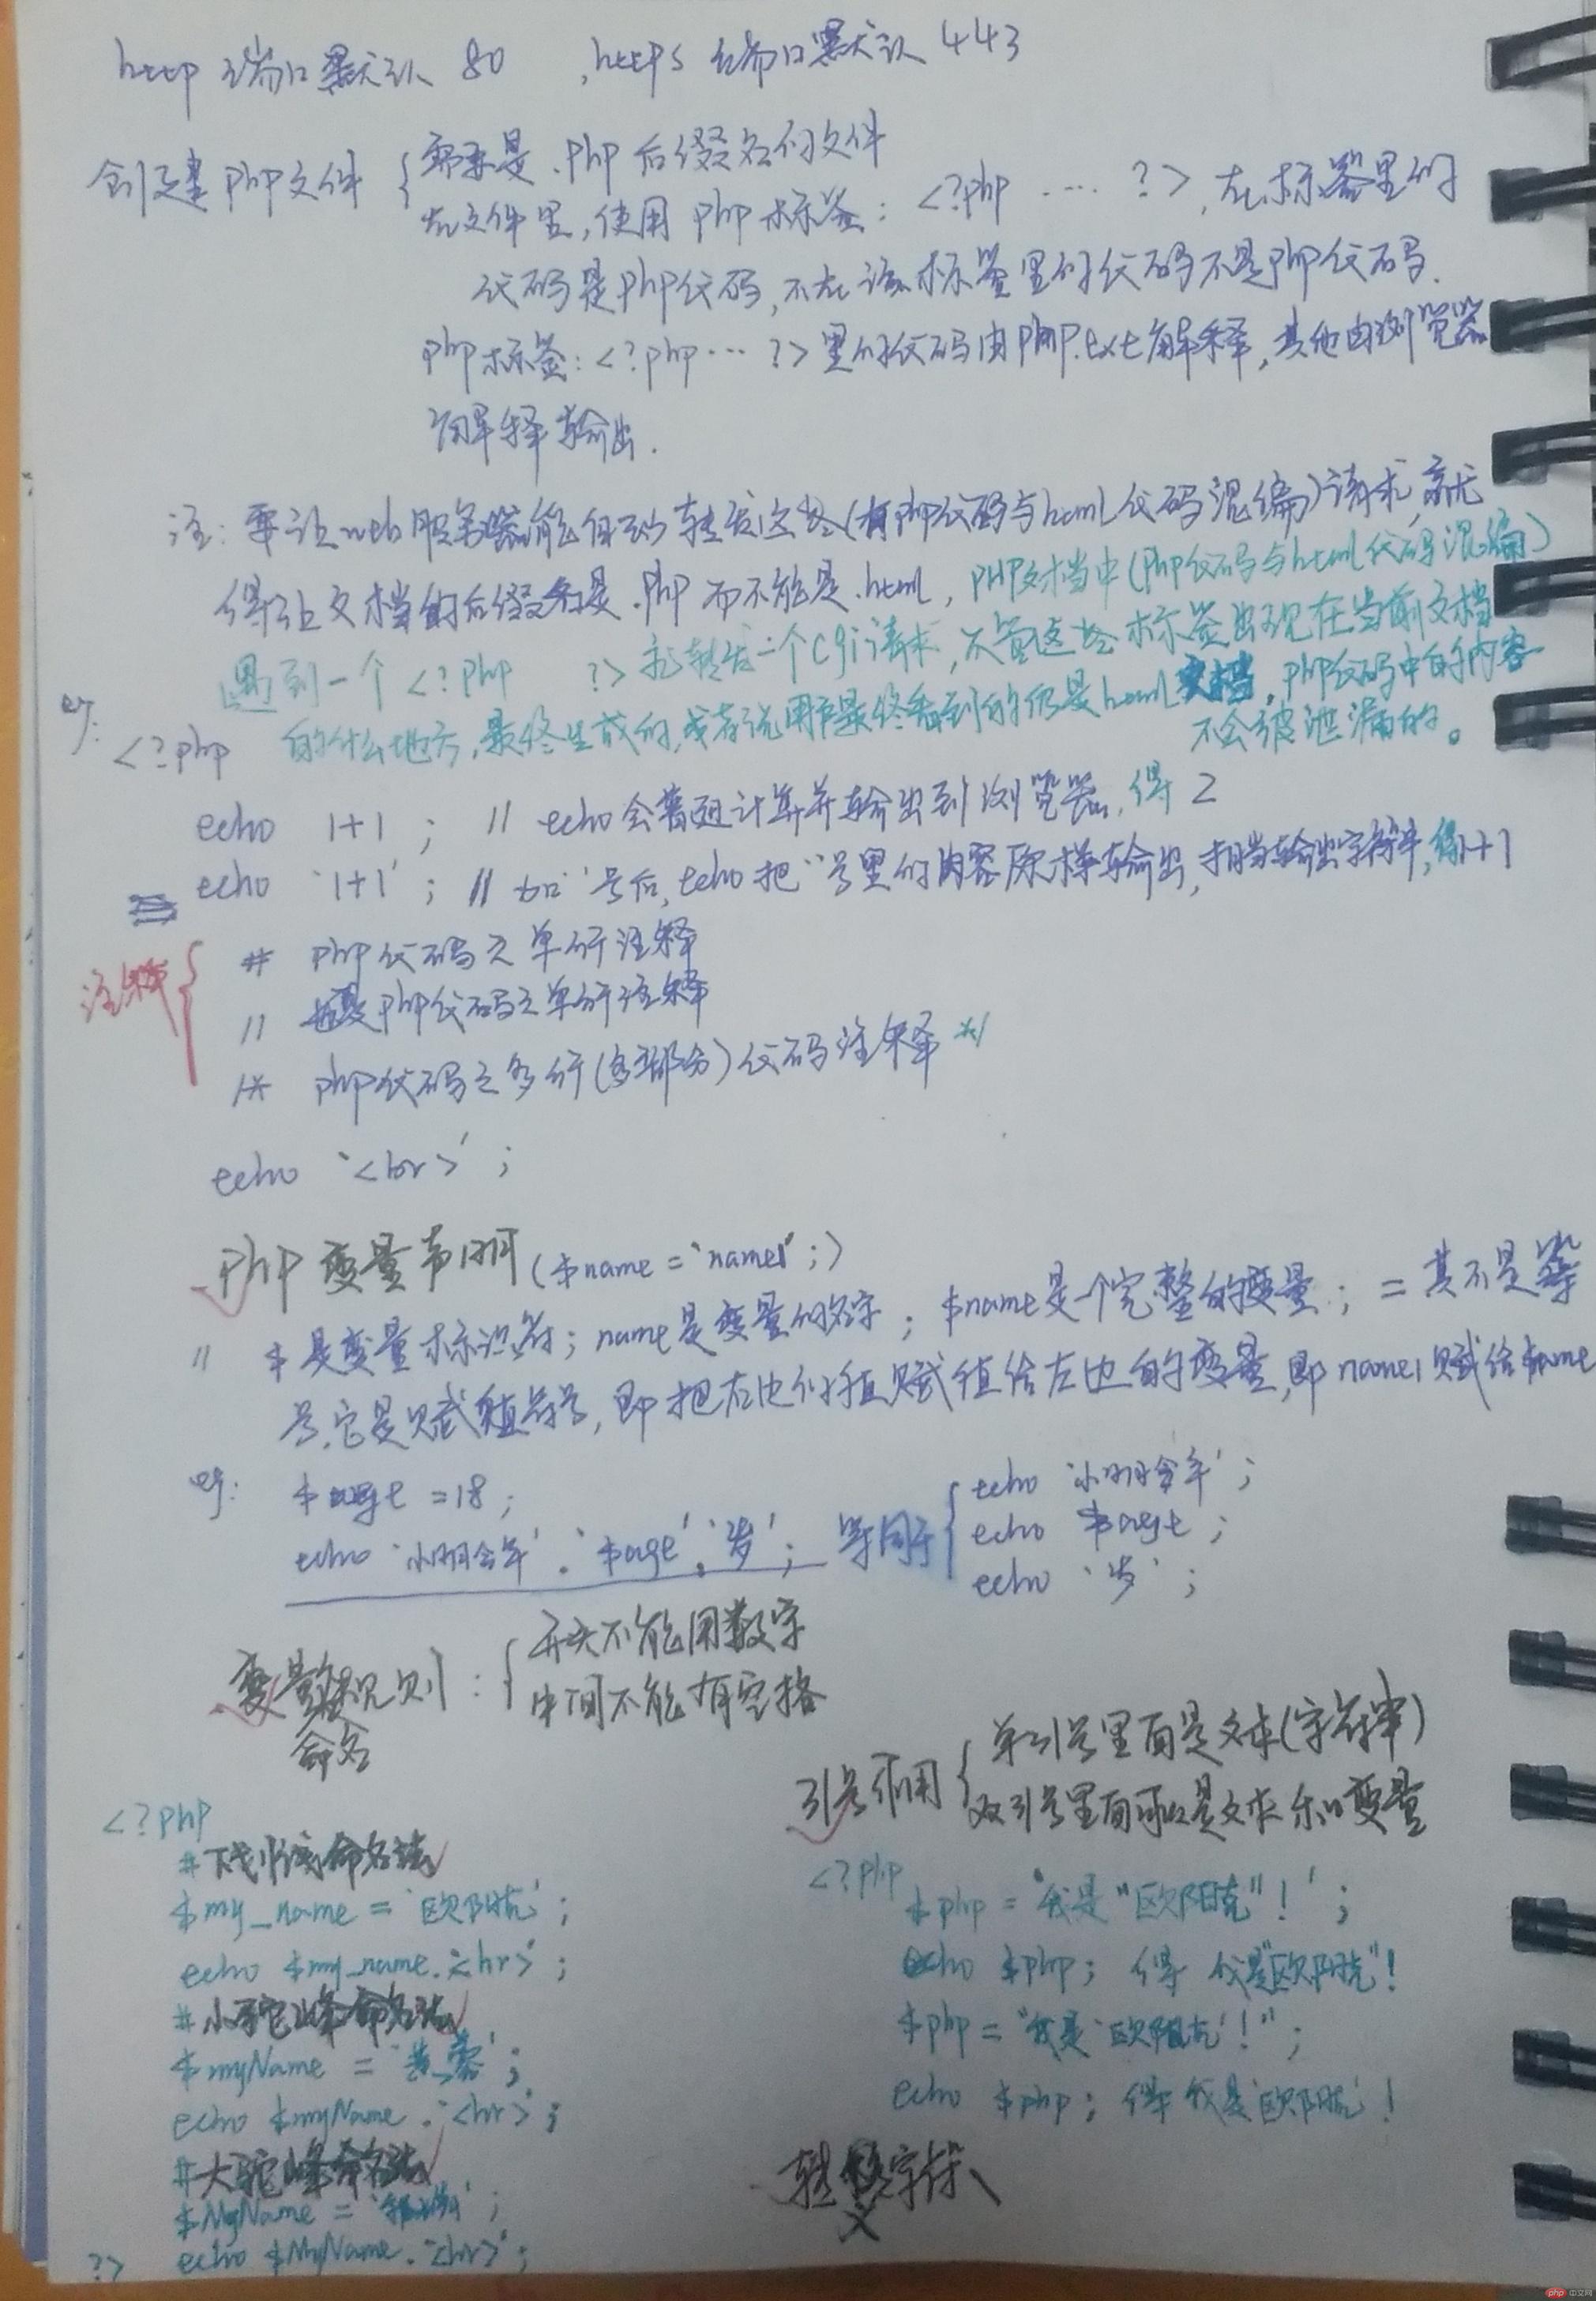 http 端口默认 80 , https 端口默认 443
创建 php文件 { 需要是 .php 后缀名的文件
在文件里, 使用 php 标签: <?php .... ?>, 在标签里的
代码是php代码, 不在该标签里的代码不是php代码.
php标签: <?php ... ?> 里的代码由 php.ext 解释, 其他由浏览器
解释输出.
注: 要让web服务器能自动转发这些(有php代码与html代码混编)请求, 就
得让文档的后缀名是 .php 而不能是 .html, PHP文档中(php代码与html代码混编)
遇到一个 <?php ?> 就转发一个cgi请求, 不管这些标签出现在当前文档
eg: <?php 的什么地方, 最终生成的, 或者说用户最终看到的仍是html文档, php代码中的内容
不会被泄漏的。
echo 1+1 ; // echo会普通计算并输出到浏览器, 得 2
echo '1+1' ; // 加' '号后, echo 把' '号里的内容原样输出, 相当输出字符串, 得1+1
注释 { # php代码之单行注释
// php代码之单行注释
/* php代码之多行(多部分)代码注释 */
echo '<br>' ;
php 变量声明 ($name = 'name1' ;)
// $ 是变量标识符; name是变量的名字 ; $name是一个完整的变量 ; = 其不是等
号, 它是赋值符号, 即把右边的值赋值给左边的变量, 即 name1 赋给$name
eg: $age = 18 ;
echo '小明今年' . '$age' . '岁' ; 等同于 { echo '小明今年' ;
echo $age ;
echo '岁' ;
变量规则 : { 开头不能用数字
命名 中间不能有空格
引号作用 { 单引号里面是文本(字符串)
双引号里面可以是文本和变量
<?php
# 下划线命名法
$my_name = '欧阳克' ;
echo $my_name.'<hr>' ;
# 小驼峰命名法
$myName = '黄蓉' ;
echo $myName.'<hr>' ;
# 大驼峰命名法
$MyName = ' ' ;
?> echo $MyName.'<hr>' ;
<?php $php = '我是"欧阳克"!' ;
echo $php ; 得 我是"欧阳克"!
$php = "我是'欧阳克'!" ;
echo $php ; 得 我是'欧阳克'!
转义字符 \
php 中文网